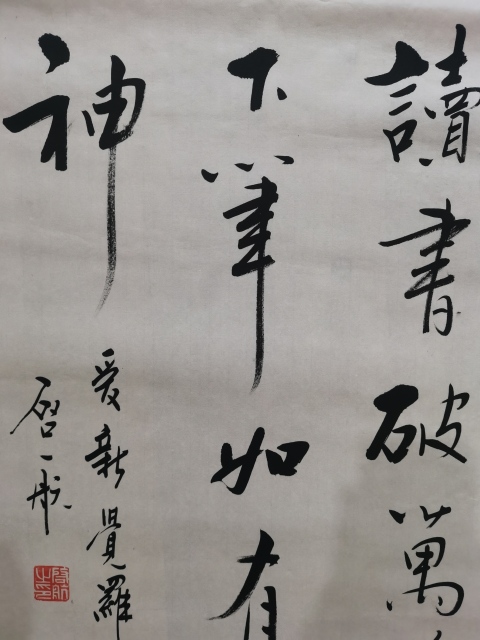 讀書破萬
下筆如有
神
爱新覺羅
啓一航